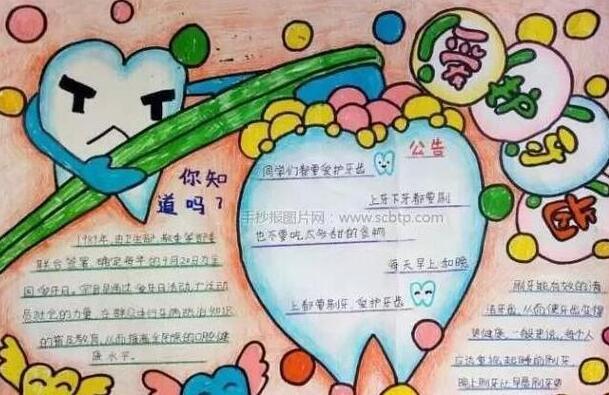 爱护牙齿
公告
同学们都要爱护牙齿
上牙下牙都要刷
也不要吃太多甜的食物
每天早上和晚
上都要刷牙,爱护牙齿
你知
道吗?
手抄报图片网:www.scbtp.com
1989年,由卫生部、教委等部委
联合签署,确定每年的9月20日为全
国爱牙日。宗旨是通过爱牙日活动,广泛动
员社会的力量,在群众进行牙病防治知识
的普及教育,从而提高全民族的口腔健
康水平。
刷牙能有效的清
洁牙齿,从而使牙齿变得
更健康。一般来说,每个人
应该重视起睡前刷牙
晚上刷牙比早晨刷牙更